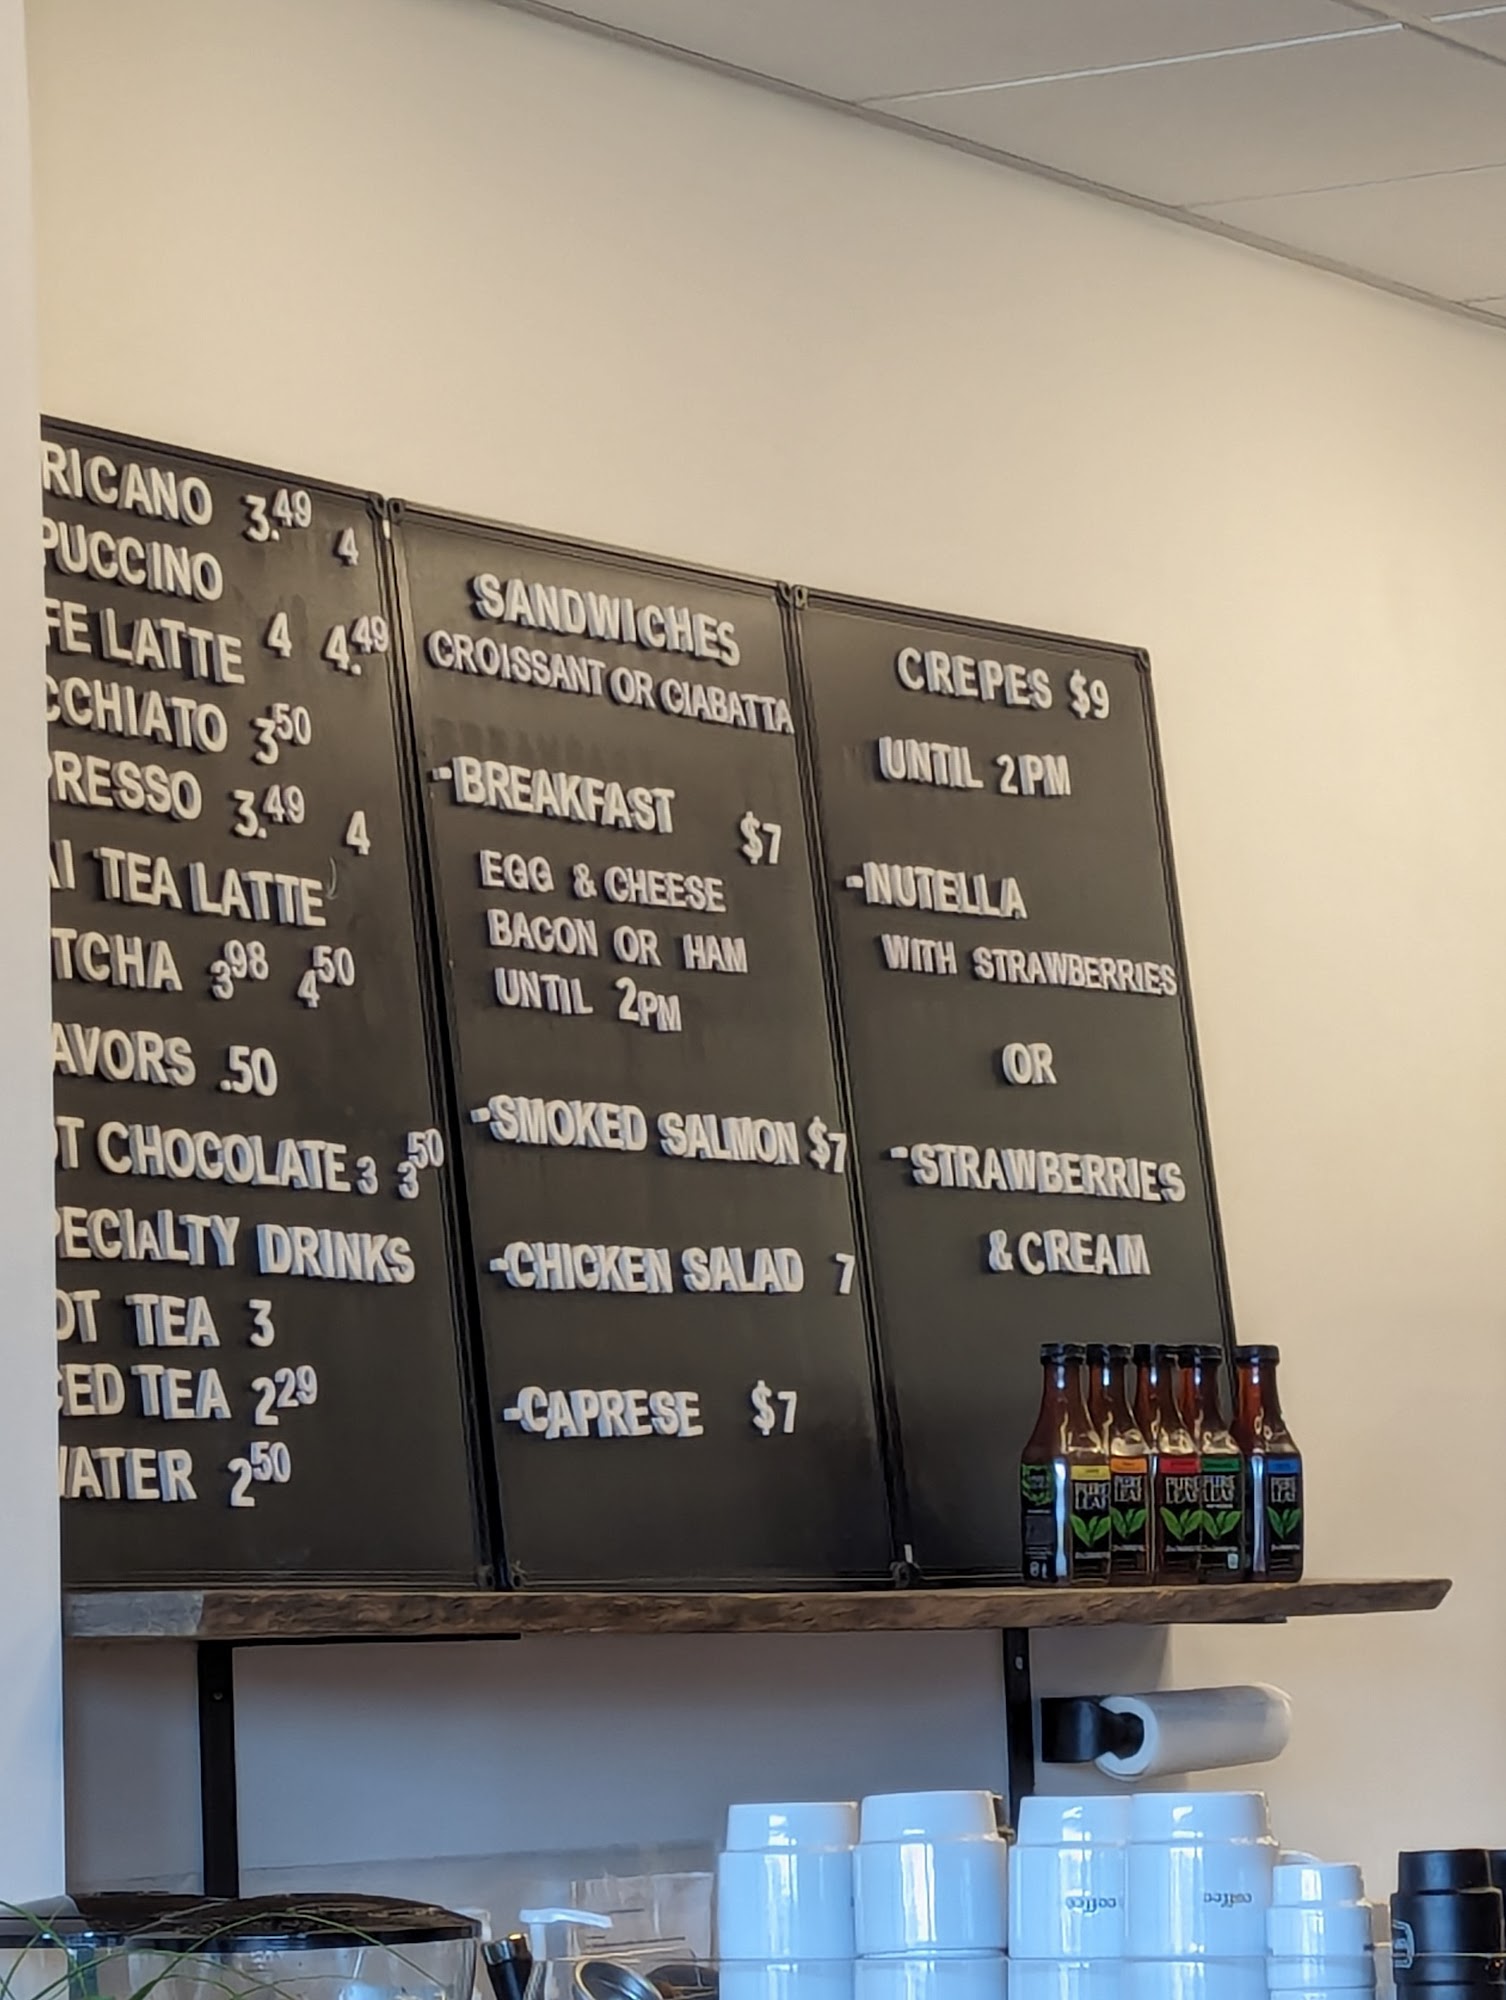 RICANO 3.49
4
PUCCINO
FE LATTE 4 4.49
CCHIATO 3 50
PRESSO 3.49 4
AI TEA LATTE
TCHA 3 98 4 50
AVORS .50
OT CHOCOLATE 3 3 50
PECIALTY DRINKS
OT TEA 3
CED TEA 2 29
WATER 2 50
SANDWICHES
CROISSANT OR CIABATTA
-BREAKFAST $7
EGG & CHEESE
BACON OR HAM
UNTIL 2PM
-SMOKED SALMON $7
-CHICKEN SALAD 7
-CAPRESE $7
CREPES $9
UNTIL 2PM
-NUTELLA
WITH STRAWBERRIES
OR
-STRAWBERRIES
& CREAM
PURE LEAF
PURE LEAF
PURE LEAF
PURE LEAF
PURE LEAF
coffee
coffee